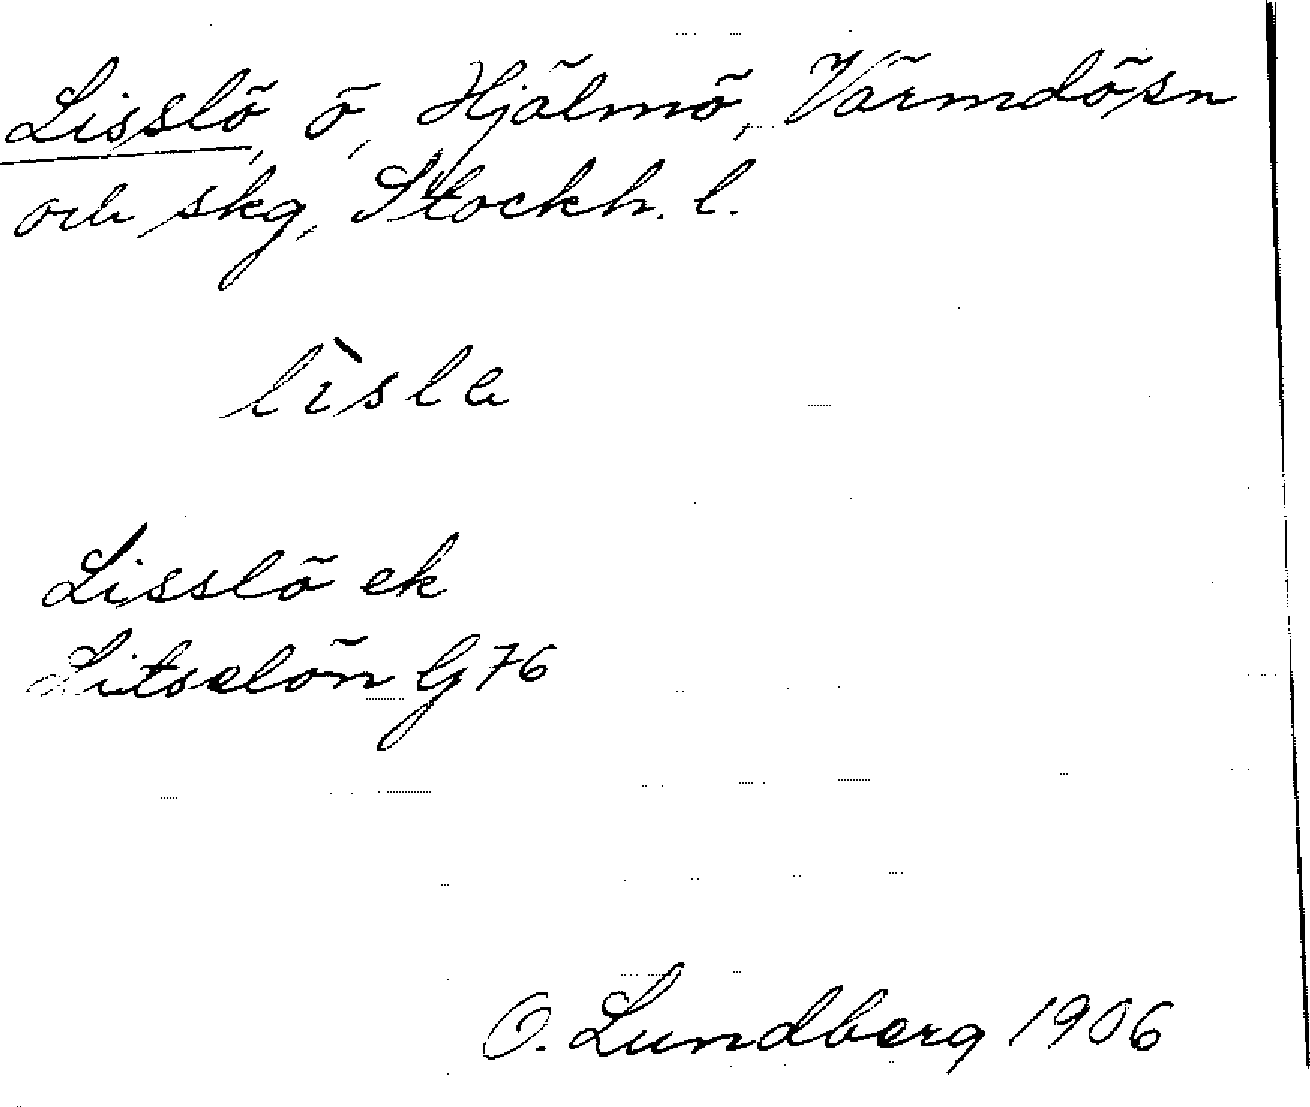 Lisslö, ö, Hjälmö, Värmdö sn
och skg, Stockh. l.
lìsla
Lisslö ek
Litselön G 76
O. Lundberg 1906